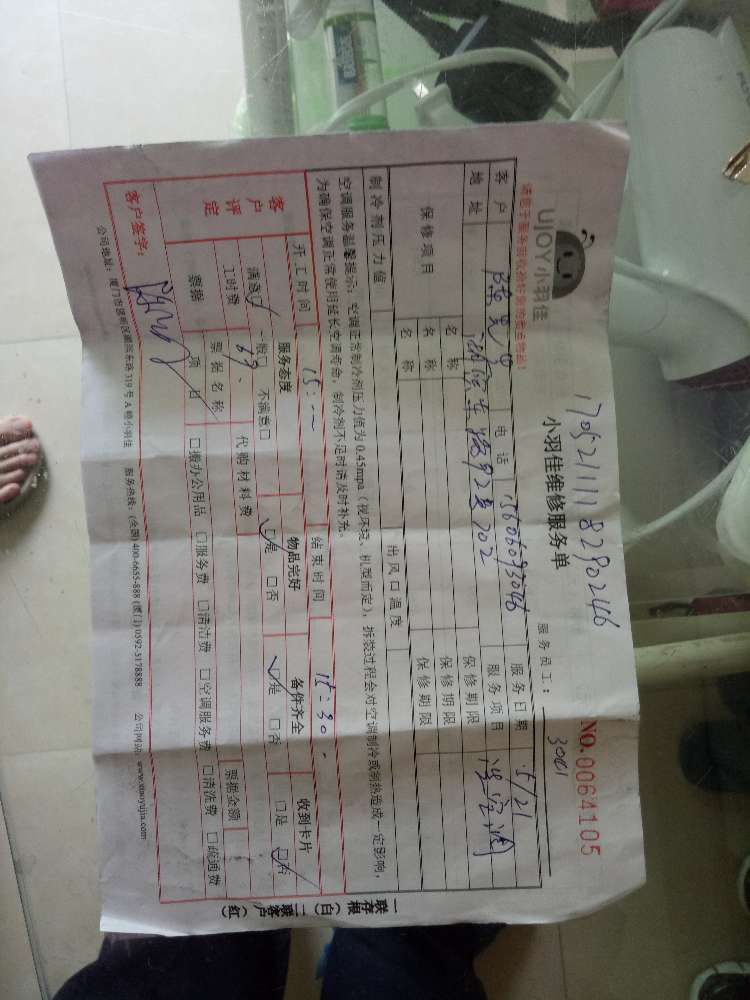 1705211118290246
UJOY小羽佳
小羽佳维修服务单
NO.0064105
请您于服务前收拾好您的贵重物品!
服务员工: 30611
客户 电话 15606093046 服务日期 5/21
地址 湖滨东路92号702 服务项目 洗空调
保修项目 名称 保修期限
名称 保修期限
名称 保修期限
制冷剂压力值 出风口温度
空调服务温馨提示: 空调正常制冷剂压力值为0.45mpa(视环境、机型而定), 拆装过程会对空调制冷或制热造成一定影响,
为确保空调正常使用延长空调寿命, 制冷剂不足时请及时补充。
开工时间 15: 结束时间 15:30
客户评定 服务态度 物品完好 备件齐全 收到卡片
满意□ 一般□ 不满意□ □是 □否 □是 □否 □是 □否
工时费 69 代购材料费
票据 票据名称 票据金额
项目 □搬办公用品 □服务费 □清洁费 □空调服务费 □清洗费 □疏通费
客户签字:
公司地址: 厦门市思明区湖滨东路319号A幢小羽佳 服务热线: (全国) 400-6655-888 (厦门) 0592-5178888 公司网站: www.xiaoyujia.com
一联存根(白) 二联客户(红)